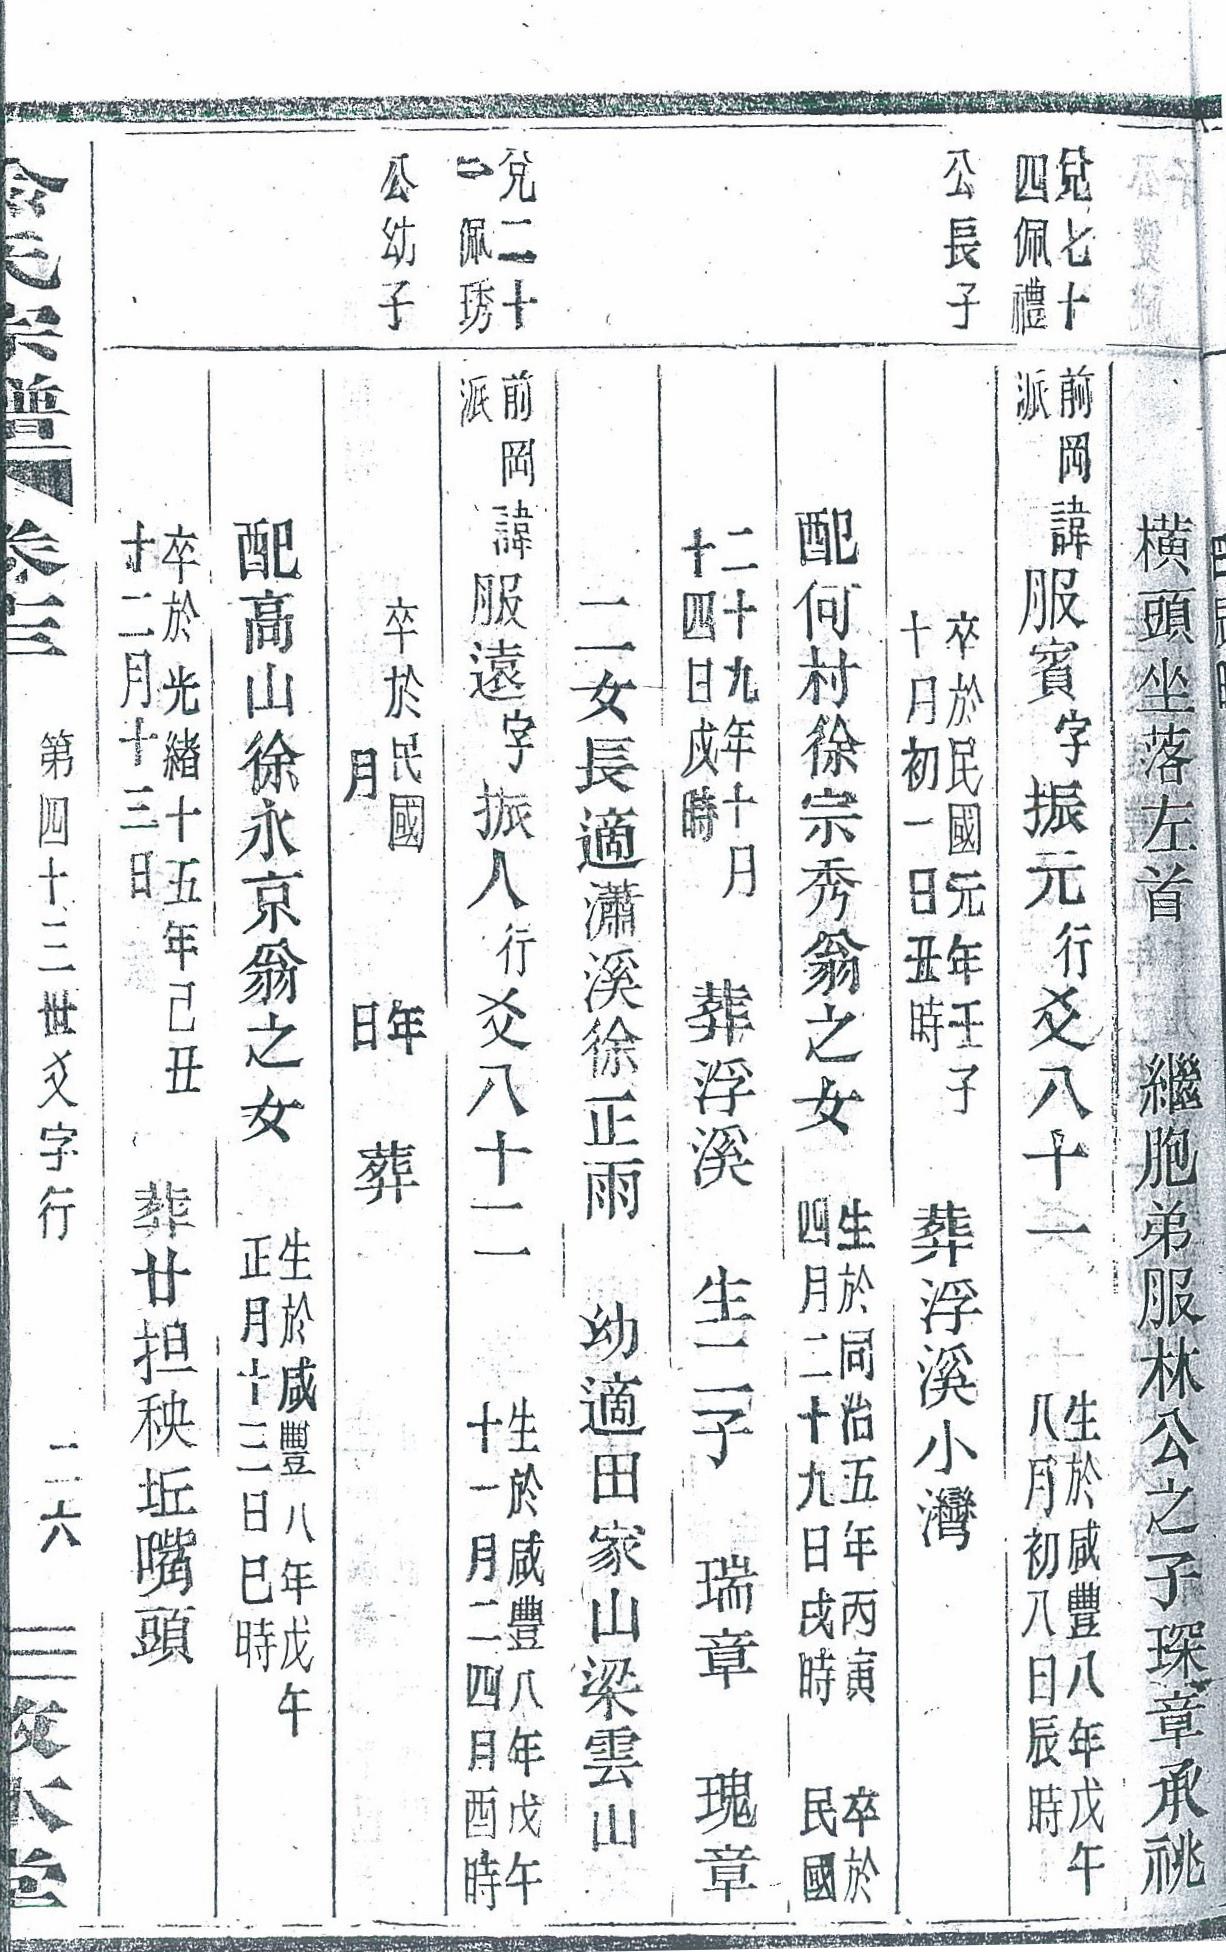 橫頭坐落左首　繼胞弟服林公之子琛章承祧
兌七十
四佩禮
公長子
前岡
派
諱服賓字振元行爻八十一
生於咸豐八年戊午
八月初八日辰時
卒於民國元年壬子
十月初一日丑時
葬浮溪小灣
配何村徐宗秀翁之女
生於同治五年丙寅
四月二十九日戌時
卒於
民國
二十九年十月
十四日戌時
葬浮溪　生二子　瑞章　瑰章
二女長適瀟溪徐正雨　幼適田家山梁雲山
兌二十
二佩琇
公幼子
前岡
派
諱服遠字振人行爻八十二
生於咸豐八年戊午
十一月二四月酉時
卒於民國　年
月　日
葬
配高山徐永京翁之女
生於咸豐八年戊午
正月十三日巳時
卒於光緒十五年己丑
十二月十三日
葬廿担秧坵嘴頭
氏宗譜　卷三　第四十三世爻字行　二六　本堂